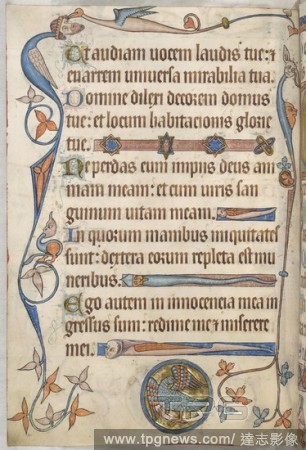 Et audiam uocem laudis tue: et
enarrem uniuersa mirabilia tua.
Domine dilexi decorem domus
tue: et locum habitacionis glorie
tue.
Ne perdas cum impijs deus ani
mam meam: et cum uiris san
guinum uitam meam.
In quorum manibus iniquitates
sunt: dextera eorum repleta est mu
neribus.
Ego autem in innocencia mea in
gressus sum: redime me et miserere
mei.
www.tpgnews.com/ 達志影像